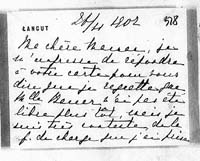 ŁAŃCUT
26/4 1902
Ma chère Mener, je
m'empresse de répondre
à votre carte pour vous
dire que je regrette que
Mlle Mener n'ai pas été
libre plus tôt, mais je
suis très contente de la
de charge que j'ai prise